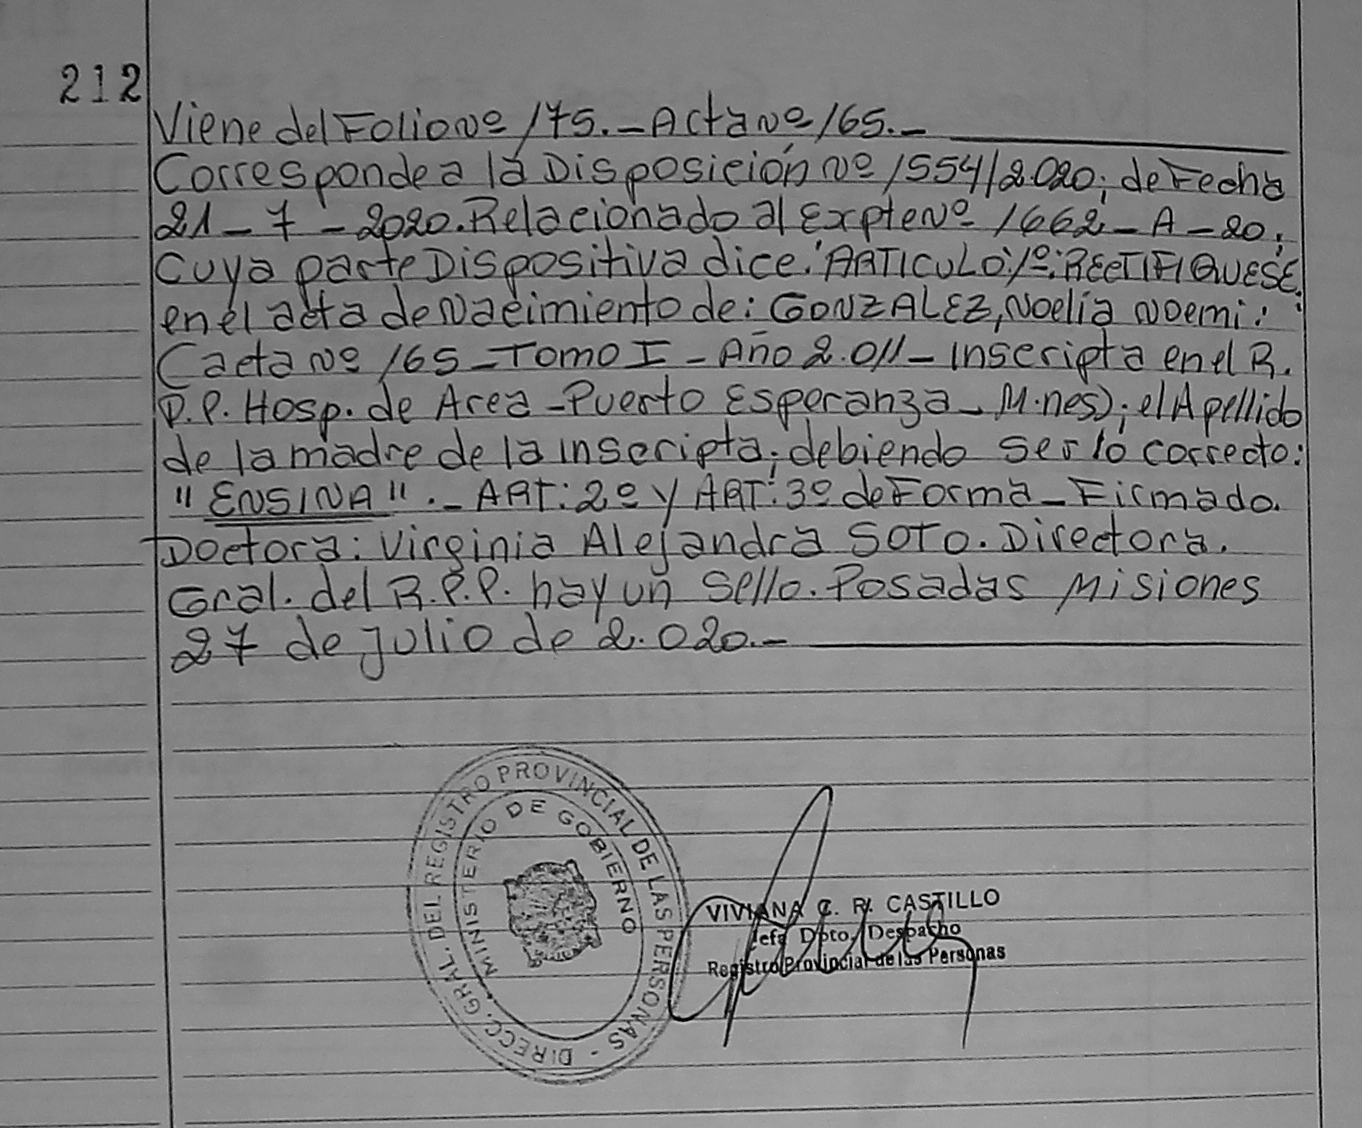 212
Viene del Folio Nº 175.- Acta Nº 165.-
Corresponde a la Disposición Nº 1554/2.020; de Fecha
21-7-2020. Relacionado al Expte Nº 1662-A-20;
Cuya parte Dispositiva dice: "ARTICULO:1º: RECTIFIQUESE
en el acta de Nacimiento de: GONZALEZ, Noelia Noemi:
(acta Nº 165-Tomo I-Año 2.011- Inscripta en el R.
P.P. Hosp. de Area-Puerto Esperanza-M.nes); el Apellido
de la madre de la inscripta; debiendo ser lo correcto:
"ENSINA".- ART: 2º y ART: 3º de Forma-Firmado.
Doctora: Virginia Alejandra SOTO. Directora.
Gral. del R.P.P. hay un Sello. Posadas Misiones
27 de julio de 2.020.-
DIRECC. GRAL. DEL REGISTRO PROVINCIAL DE LAS PERSONAS -
MINISTERIO DE GOBIERNO
VIVIANA C. R. CASTILLO
Jefa Dpto. Despacho
Registro Provincial de las Personas